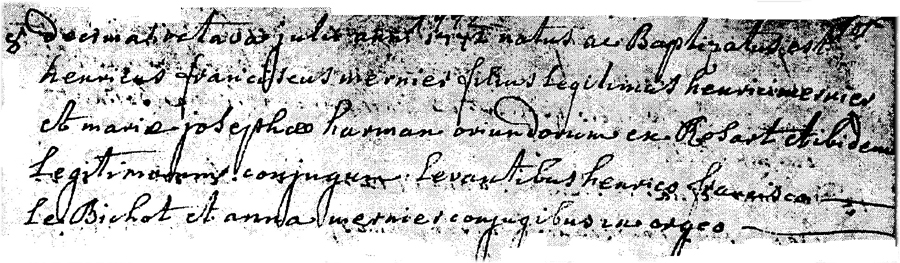 decima octava julii anni 1772 natus ac Baptizatus est
henricus franciscus mernier filius legitimus henrici mernier
et mariæ josephæ harman oriundorum ex Rosart et ibidem
Legitimorum conjugum Levantibus henrico francisco
Le Bichot et anna mernier conjugibus ex orgeo